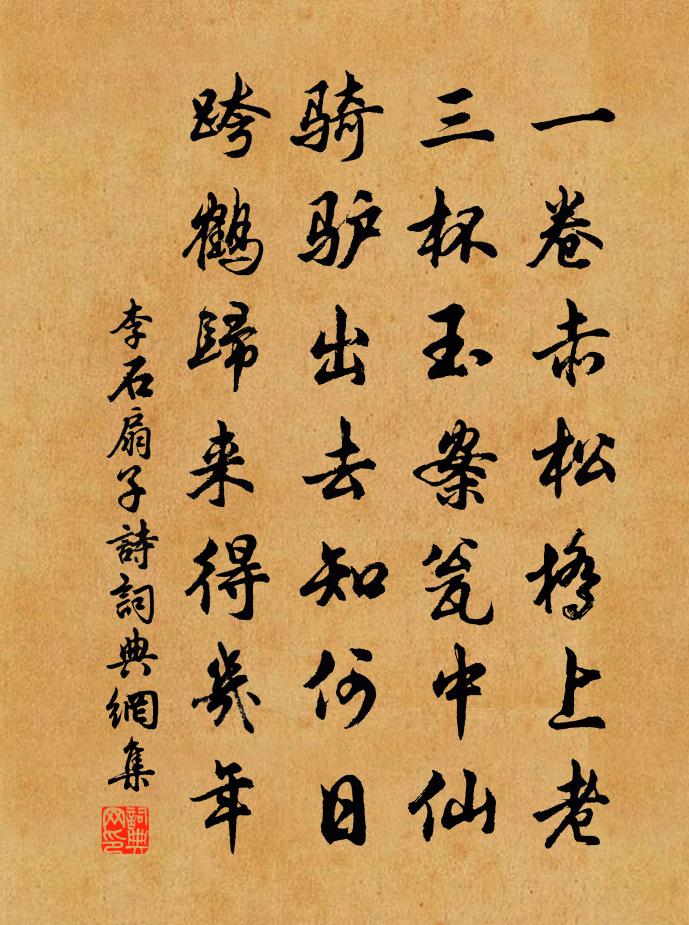 一卷赤松橋上老
三杯玉案瓮中仙
骑驴出去知何日
跨鶴歸来得幾年
李石扇子詩詞典網集
詞典网印